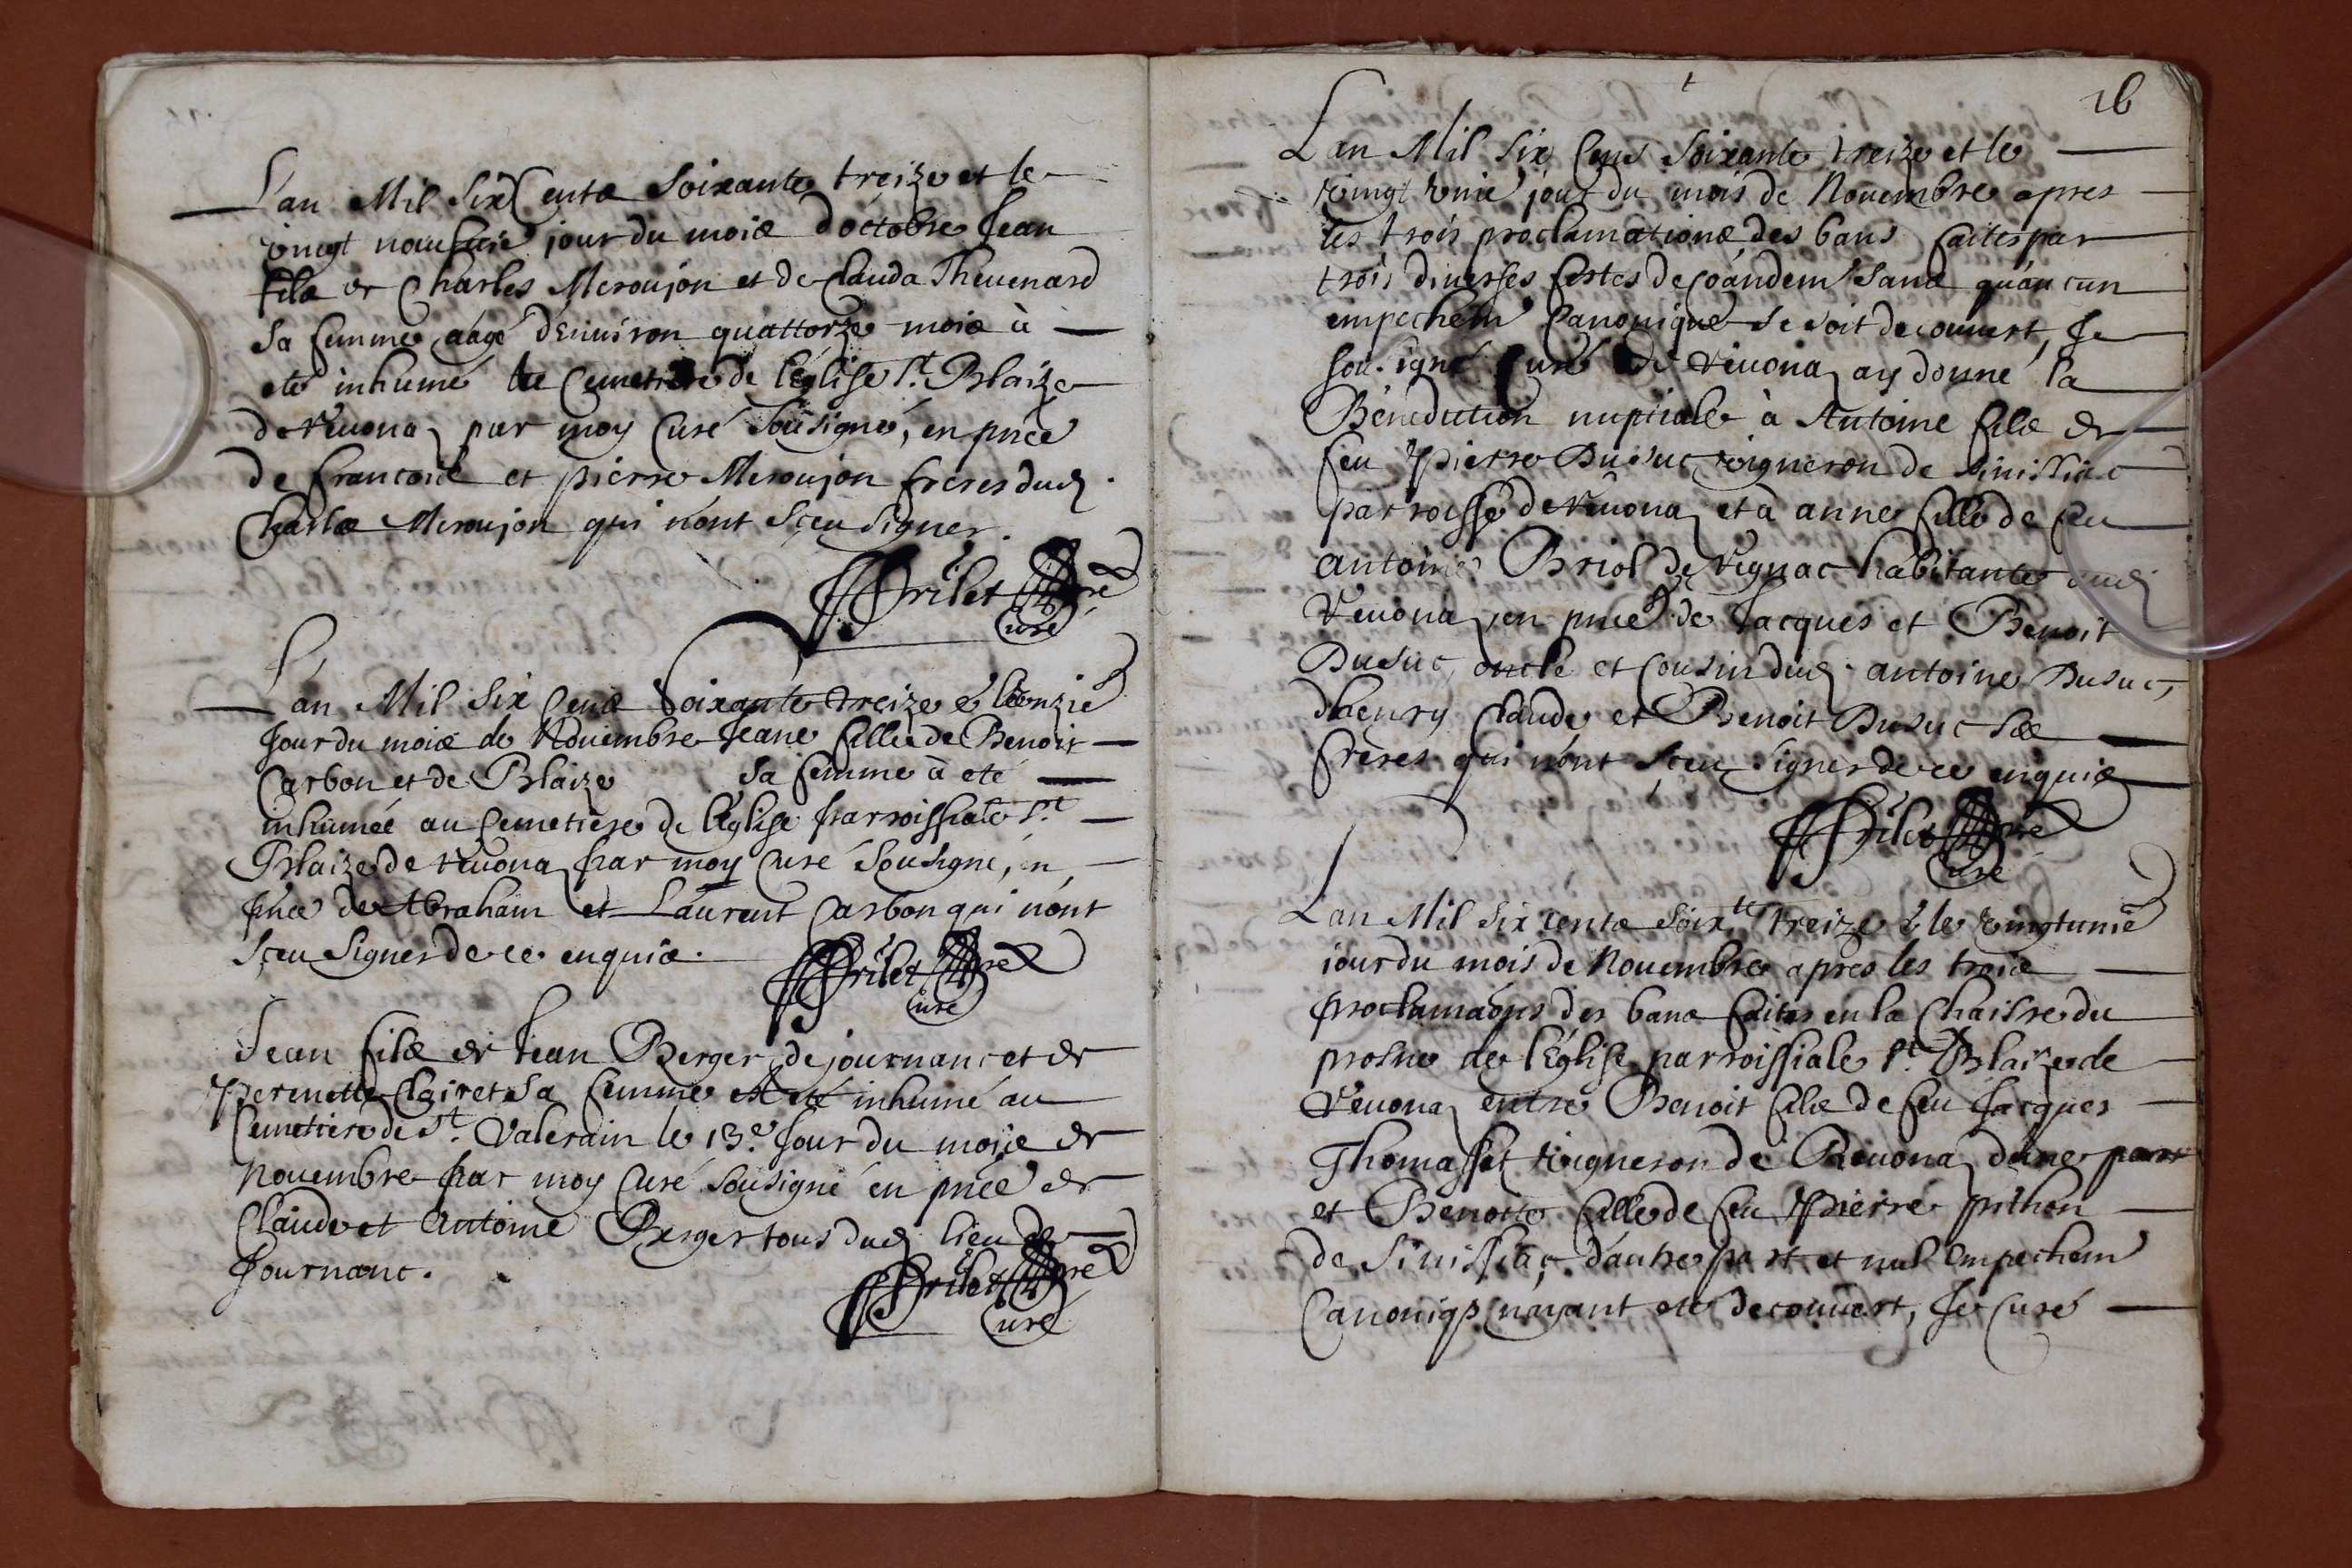 L'an Mil Six Cents Soixante treize et le
vingt neufuie jour du mois d'octobre Jean
fils de Charles Meroujon et de Clauda Theuenard
sa femme aagé d'enuiron quattorze mois à
eté inhumé le Cemetiere de l'église St. Blaize
de Reuona par moy Curé Sousigné, en pnce
de francois et pierre Meroujon freres dud.
Charles Meroujon qui n'ont Sçeu Signer.
Frilet pre
Curé
L'an Mil Six Cens Soixante treize & le onzie
Jour du mois de Nouembre Jeane fille de Benoit
Carbon et de Blaize sa femme à eté
inhumée au Cemetiere de l'église parroissiale St.
Blaize de Reuona par moy Curé Sousigné, en
pnce de Abraham et Laurent Carbon qui n'ont
sçeu Signer de ce enquis.
Frilet pre
Curé
Jean fils de Jean Berger de journanc et de
Pernette Clairet sa femme a eté inhumé au
Cemetiere de St. Valerain le 13e. Jour du mois de
Nouembre par moy Curé Sousigné en pnce de
Claude et Antoine Berger tous dud. lieu de
Journanc.
Frilet pre
Curé
16
L'an Mil Six Cens Soixante treize et le
vingt vnie jour du mois de Nouembre apres
les trois proclamations des bans faites par
trois diuerses festes de coandem Sans qu'aucun
empechem Canonique se soit decouuert, Je
sousigné Curé de Reuona ay donné la
Bénédiction nuptiale à Antoine fils de
feu Pierre Dusuc vigneron de Sinissiac
parroisse de Reuona et à anne fille de feu
antoine Briol de Vignac habitante aud.
Reuona, en pnce de Jacques et Benoit
Dusuc, oncle et Cousin dud. antoine Dusuc,
d'henry Claude et Benoit Dusuc ses
freres qui n'ont sceu signer de ce enquis
Frilet pre
Curé
L'an Mil Six cents Soixte treize & le vingtunie
jour du mois de Nouembre apres les trois
proclamaons des bans faites en la Chaisre du
prosne de l'Église parroissiale St. Blaize de
Reuona entre Benoit fils de feu Jacques
Thomasset vigneron de Reuona d'une part
et Benoite fille de feu Pierre pithon
de Sinissiac d'autre part et nul empechem
Canoniq n'ayant eté decouuert, Je Curé